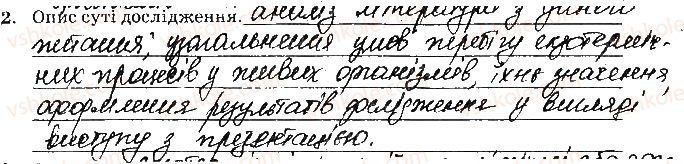 2. Опис суті дослідження. аналіз літератури з цього
питання, узагальнення умов перебігу екзотерміч-
них процесів у живих організмів, їхнє значення,
оформлення результатів дослідження у вигляді
виступу з презентацією.